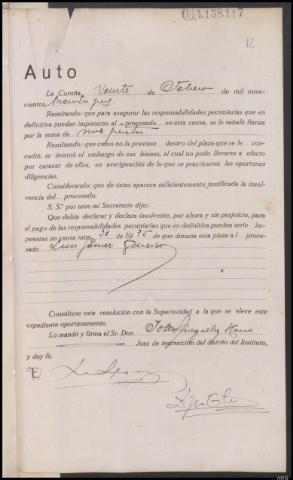 4.158.117
12
Auto
La Coruña Veinte de Febrero de mil nove-
cientos treinta y seis.
Resultando: que para asegurar las responsabilidades pecuniarias que en
definitiva puedan imponerse al procesado en esta causa, se le señaló fianza
por la suma de mil pesetas
Resultando: que como no la prestase dentro del plazo que se le con-
cedió, se intentó el embargo de sus bienes, el cual no pudo llevarse a efecto
por carecer de ellos, en averiguación de lo que se practicaron las oportunas
diligencias.
Considerando: que de éstas aparece suficientemente justificada la insol-
vencia del procesado.
S. Sª. por ante mi Secretario dijo:
Que debía declarar y declara insolvente, por ahora y sin perjuicio, para
el pago de las responsabilidades pecuniarias que en definitiva puedan serle im-
puestas en causa núm. 31 de 1935 de que dimana esta pieza al proce-
sado Luis
Consúltese esta resolución con la Superioridad a la que se eleve este
expediente oportunamente.
Lo mandó y firma el Sr. Don
Juez de instrucción del distrito del Instituto,
y doy fe.